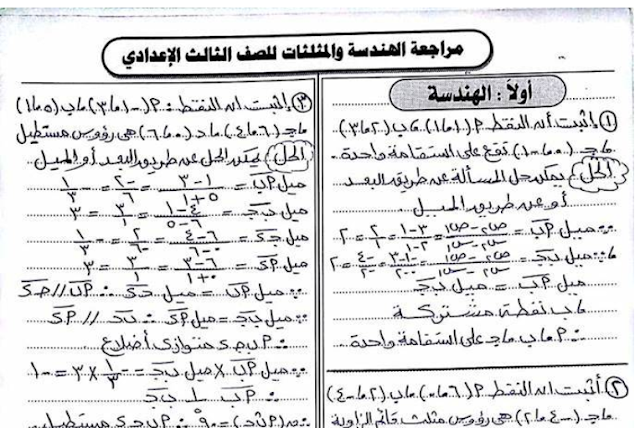 مراجعة الهندسة والمثلثات للصف الثالث الإعدادي
أولاً : الهندسة
١) إثبت أن النقط P (١ ، ١) ، ب (٢ ، ٣)
، جـ (٠ ، -١) تقع على استقامة واحدة
الحل يمكن حل المسألة عن طريق البعد
أو عن طريق الميل
∵ ميل P ب = (ص٢ - ص١)/(س٢ - س١) = (٣-١)/(٢-١) = ٢/١ = ٢
، ميل ب جـ = (ص٢ - ص١)/(س٢ - س١) = (-١-٣)/(٠-٢) = -٤/-٢ = ٢
∴ ميل P ب = ميل ب جـ
، ب نقطة مشتركة
∴ P ، ب ، جـ على استقامة واحدة
٢) أثبت أن النقط P (٦ ، ٠) ، ب (٢ ، -٤)
، جـ (-٤ ، ٢) هى رؤوس مثلث قائم الزاوية
٣) إثبت أن النقط : P (-١ ، ٣) ، ب (٥ ، ١)
، جـ (٦ ، ٤) ، د (٠ ، ٦) هى رؤوس مستطيل
الحل يمكن الحل عن طريق البعد أو الميل
ميل P ب = (١-٣)/(٥+١) = -٢/٦ = -١/٣
ميل ب جـ = (٤-١)/(٦-٥) = ٣/١ = ٣
ميل جـ د = (٤-٦)/(٦-٠) = -٢/٦ = -١/٣
ميل P د = (٦-٣)/(٠+١) = ٣/١ = ٣
∵ ميل P ب = ميل جـ د ∴ P ب // جـ د
∵ ميل ب جـ = ميل P د ∴ ب جـ // P د
∴ P ب جـ د متوازى أضلاع
∵ ميل P ب × ميل ب جـ = -١/٣ × ٣ = -١
∴ P ب ⊥ ب جـ